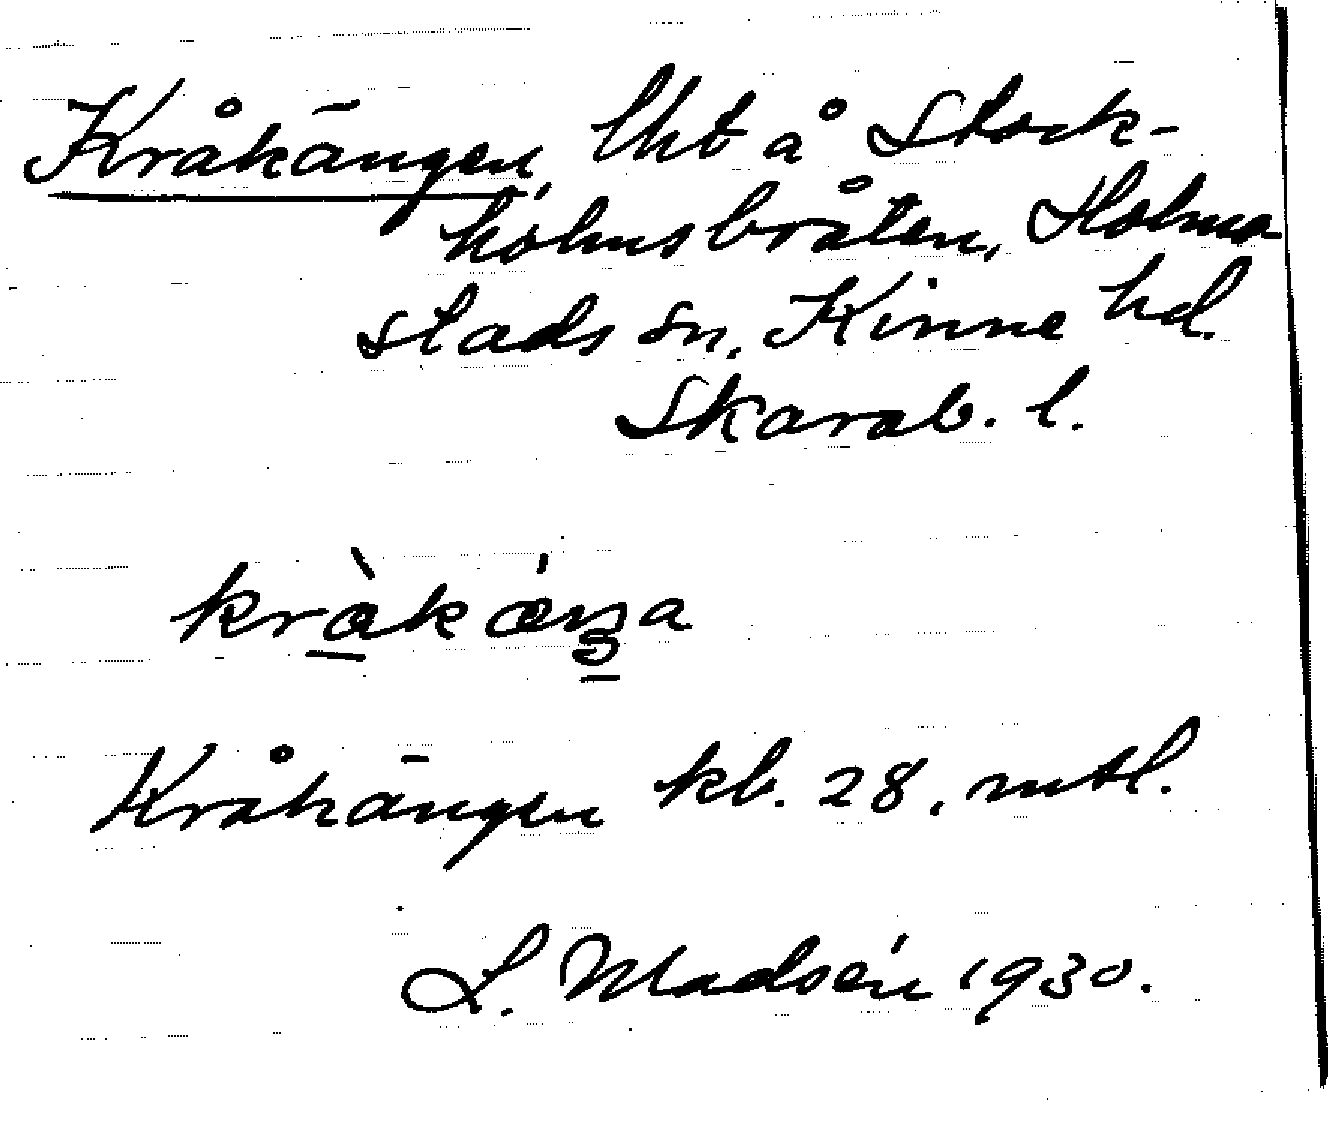 Kråkängen, lht å Stock-
holmsbråten, Holme-
stads sn, Kinne hd.
Skarab. l.
kråkänga
Kråkängen kb. 28, mtl.
L. Madsén 1930.